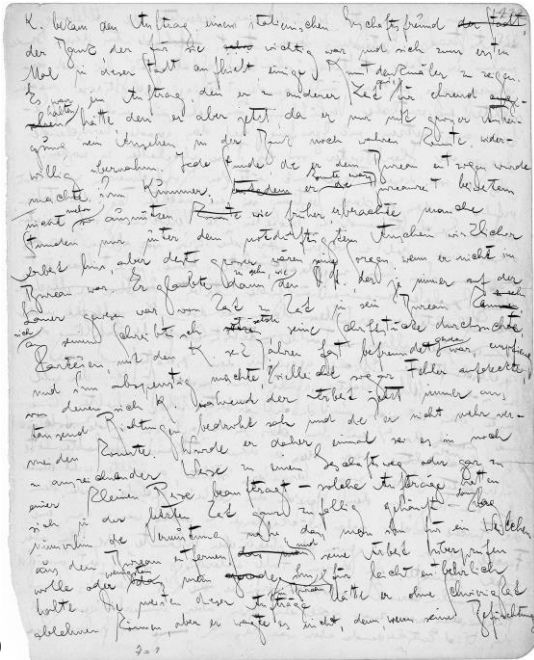 K. bekam den Auftrag einem italienischen Geschäftsfreund der Stadt,
der Bank der für sie sehr wichtig war und sich zum ersten
Mal in dieser Stadt aufhielt einige Kunstdenkmäler zu zeigen.
Es war ein Auftrag den er zu anderer Zeit gewiss für ehrend
hätte den er aber jetzt da er nur mit grosser Anstren-
gung sein Ansehen in der Bank noch wahren konnte, wider-
willig übernahm. Jede Stunde die er dem Bureau entzogen wurde
machte ihm Kummer, trotzdem er die Bureauzeit beiweitem
nicht mehr so ausnützen konnte wie früher, er brachte manche
Stunden nur unter dem notdürftigsten Anschein wirklicher
Arbeit hin, aber desto grösser waren seine Sorgen wenn er nicht im
Bureau war. Er glaubte dann zu sehn, wie der D. St. der ja immer auf der
Lauer gewesen war von Zeit zu Zeit in sein Bureau kam
sich an seinen Schreibtisch setzte seine Schriftstücke durchsuchte
Parteien mit denen K. seit Jahren fast befreundet gewesen war empfieng
und ihm abspenstig machte vielleicht sogar Fehler aufdeckte
von denen sich K. während der Arbeit jetzt immer aus
tausend Richtungen bedroht sah und die er nicht mehr ver-
meiden konnte. Wurde er daher einmal sei es in noch
so auszeichnender Weise zu einem Geschäftsweg oder gar zu
einer kleinen Reise beauftragt – solche Aufträge hatten
sich in der letzten Zeit ganz zufällig gehäuft – dann lag
immerhin die Vermutung nahe dass man ihn für ein Weilchen
aus dem Bureau entfernen und seine Arbeit überprüfen
wolle oder wenigstens dass man ihn im Bureau für leicht entbehrlich
halte. Die meisten dieser Aufträge hätte er ohne Schwierigkeit
ablehnen können aber er wagte es nicht, denn wenn seine Befürchtung